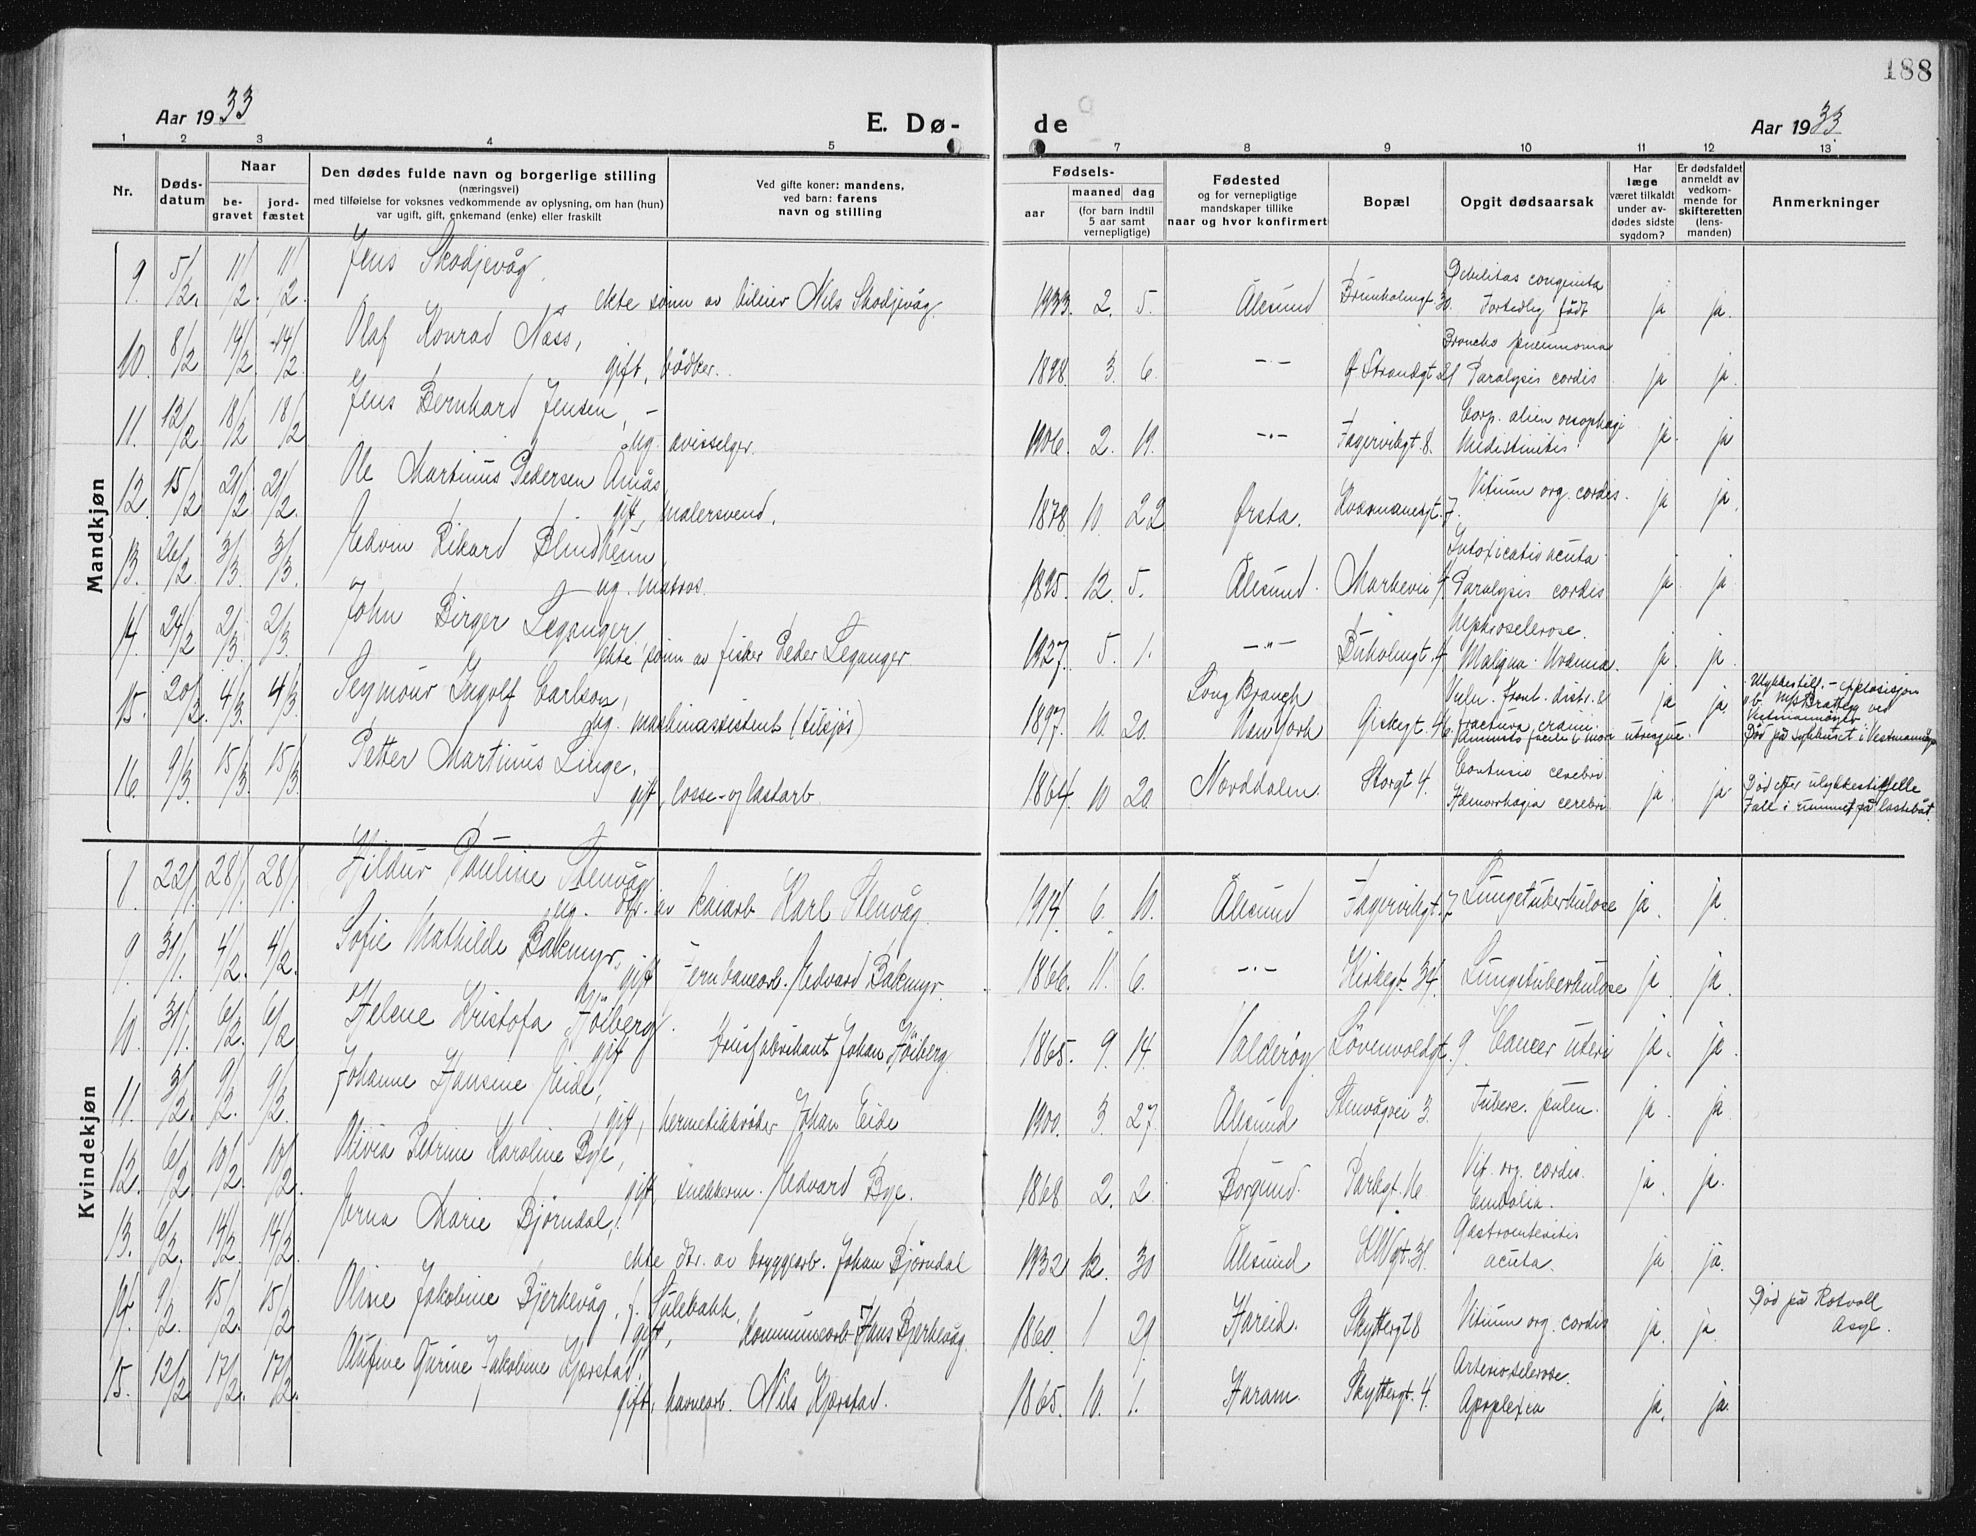 188
Aar 1933
E. Dø-
de
Aar 1933
1 2 3 4 5 7 8 9 10 11 12 13
Nr.
Døds-
datum
Naar
be-
gravet
jord-
fæstet
Den dødes fulde navn og borgerlige stilling
(næringsvei)
med tilføielse for voksnes vedkommende av oplysning, om han (hun)
var ugift, gift, enkemand (enke) eller fraskilt
Ved gifte koner: mandens,
ved barn: farens
navn og stilling
Fødsels-
aar
maaned dag
(for barn indtil
5 aar samt
vernepligtige)
Fødested
og for vernepligtige
mandskaper tillike
naar og hvor konfirmert
Bopæl
Opgit dødsaarsak
Har
læge
været tilkaldt
under av-
dødes sidste
sygdom?
Er dødsfaldet
anmeldt av
vedkom-
mende for
skifteretten
(lens-
manden)
Anmerkninger
Mandkjøn
9. 5/2. 11/2. 11/2. Jens Skodjevåg,
ekte sønn av bileier Nils Skodjevåg. 1933. 2. 5. Ålesund Brunholmgt. 30. Debilitas congenita
Fortidlig født ja ja.
10. 8/2 14/2. 14/2. Olaf Konrad Næss,
gift, bødker. 1898. 3. 6. -"- Ø. Strandgt 21 Broncho pneumoma
Paralysis cordis ja ja.
11. 12/2 18/2 18/2 Jens Bernhard Jensen,
ug. avisselger. 1906. 2. 19. -"- Fagervikgt 8. Corp. alien oesophagi
Mediastinitis ja. ja
12. 15/2 21/2 21/2. Ole Martinus Pedersen Amås
gift, malersvend. 1878. 10. 22 Ørsta. Kvasmanesgt. 7. Vitium org. cordis. ja ja.
13. 26/2. 3/3. 3/3. Edvin Rikard Blindheim
ug. matros. 1895. 12. 5. Ålesund. Markevei 4. Intoxicatio acuta
Paralysis cordis ja. ja
14. 24/2 2/3. 2/3. John Birger Leganger
ekte sønn av fisker Peder Leganger. 1927. 5. 1. -"- Buholmgt. 4 Nephrosclerose.
Maligna. Uræmia. ja. ja.
15. 20/2. 4/3. 4/3. Seymour Ingolf Carlson,
ug. maskinassistent (tilsjøs) 1897. 10. 20. Long Branch
New York Giskegt. 46 Vuln. front. distr. &
fractura cranii
utresque. ja ja. Ulykkestilf. - explosisjon
Vestmannøyer.
Død på sykehuset i Vestmannøyer
16. 9/3. 15/3. 15/3. Petter Martinus Linge,
gift, losse- og lastarb. 1864. 10 20 Norddalen. Storgt 4. Contusio cerebri
Hæmorrhagia cerebri ja. ja. Død efter ulykkestilfelle
Fall i rummet på lastebåt.
Kvindekjøn
8. 22/1. 28/1. 28/1. Hildur Pauline Stenvåg
ug. dtr. av kaiarb Karl Stenvåg. 1914. 6. 10. Ålesund Fagervikgt. 7 Lungetuberkulose ja. ja.
9. 31/1. 4/2. 4/2. Sofie Mathilde Bakmyr,
gift jernbanearb. Edvard Bakmyr. 1866. 11. 6. -"- Kirkegt. 34. Lungetuberkulose ja. ja.
10. 31/1. 6/2. 6/2 Helene Kristofa Høiberg.
gift brusfabrikant Johan Høiberg. 1865. 9. 14. Valderøy Løvenvoldgt. 9 Cancer uteri ja. ja.
11. 3/2. 9/2. 9/2. Johanne Hansine Eide,
gift, hermetikkrøker Johan Eide 1900. 3. 27. Ålesund Stenvågvei 3. Tuberc. pulm. ja. ja.
12. 6/2 10/2. 10/2. Olivia Petrine Karoline Bye,
gift snekkerm. Edvard Bye. 1868 2. 2. Borgund. Parkgt. 16. Vit. org. cordis.
Embolia. ja. ja.
13. 6/2. 14/2. 14/2. Erna Marie Bjørndal,
ekte dtr. av bryggearb. Johan Bjørndal 1932 12. 30 Ålesund K.W.gt. 31. Gastroenteritis
acuta. ja ja.
14. 9/2. 15/2. 15/2 Oline Jakobine Bjerkevåg, f. Sulebakk,
gift, kommunearb Hans Bjerkevåg. 1860. 1 29 Hareid. Skyttergt 8 Vitium org. cordis ja. ja Død på Rotvoll
Asyl.
15. 12/2 17/2. 17/2. Olufine Gurine Jakobine Kjærstad.
gift, havnearb. Nils Kjærstad. 1865. 10. 1. Haram. Skyttergt. 4. Arteriosclerose.
Apoplexia ja. ja.